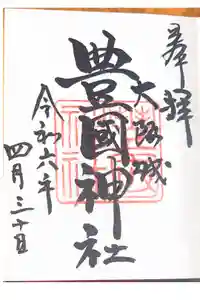 奉拝
大阪城
豊國神社
令和六年
四月三十日